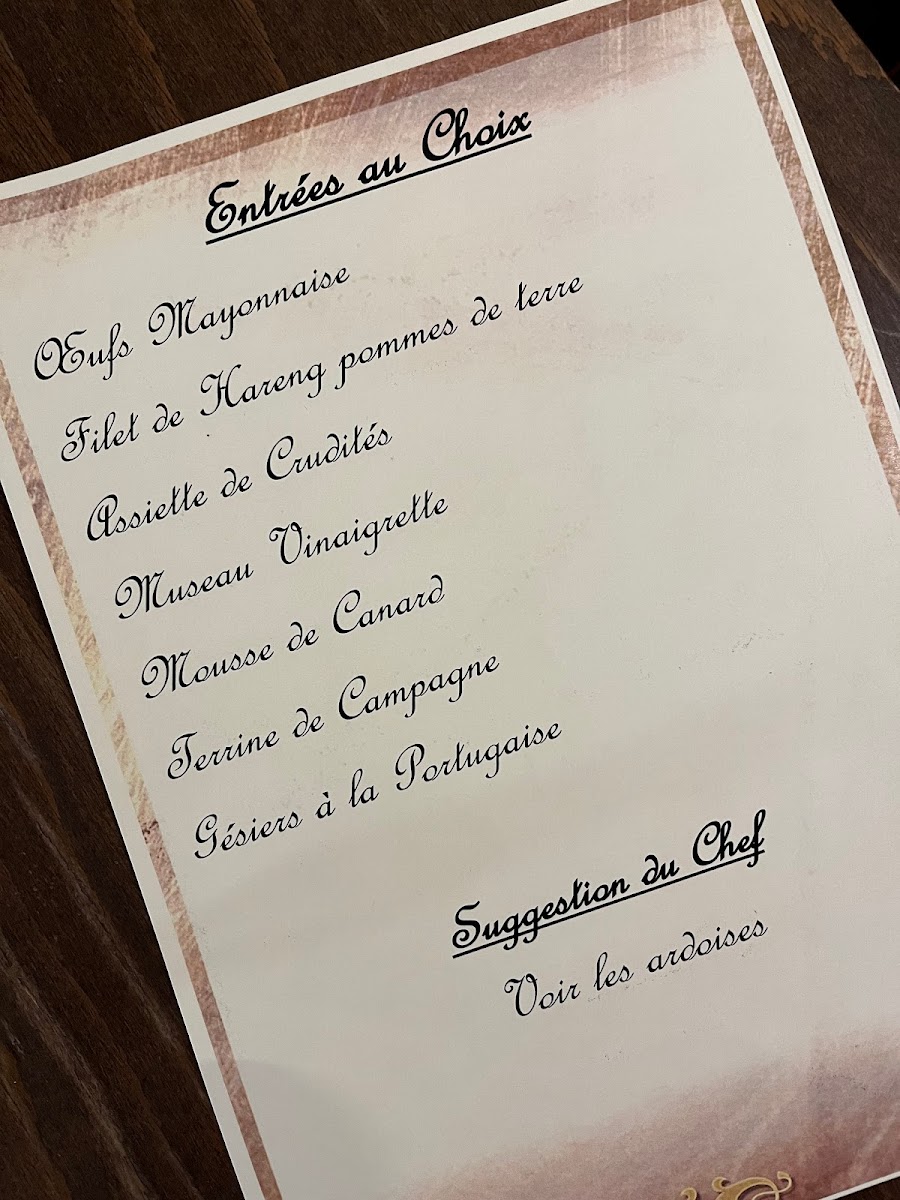 Entrées au Choix
Œufs Mayonnaise
Filet de Hareng pommes de terre
Assiette de Crudités
Museau Vinaigrette
Mousse de Canard
Terrine de Campagne
Gésiers à la Portugaise
Suggestion du Chef
Voir les ardoises